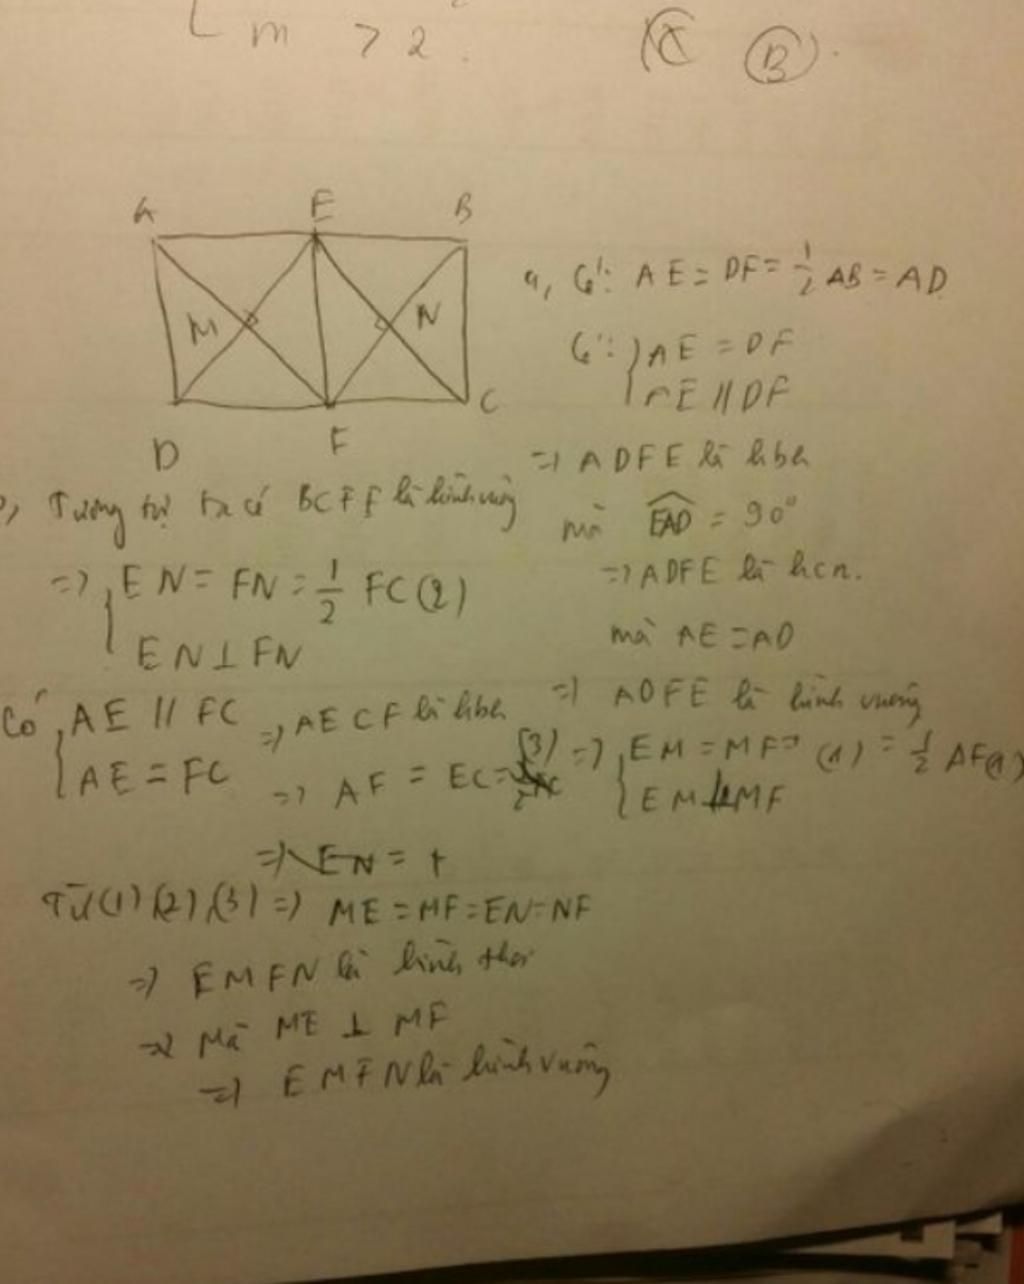 m > 2.
B
A E B
M N
D F C
a, Có: AE = DF = 1/2 AB = AD
Có: { AE = DF
AE // DF
=> ADFE là hbh
mà EAD = 90°
=> ADFE là hcn.
mà AE = AD
=> ADFE là hình vuông
=> { EM = MF = (1) = 1/2 AF (1)
EM ⊥ MF
Tương tự ta có BCFE là hình vuông
=> { EN = FN = 1/2 FC (2)
EN ⊥ FN
Có { AE // FC => AECF là hbh
AE = FC => AF = EC (3)
=> EN = +
Từ (1) (2) (3) => ME = MF = EN = NF
=> EMFN là hình thoi
=> Mà ME ⊥ MF
=> EMFN là hình vuông